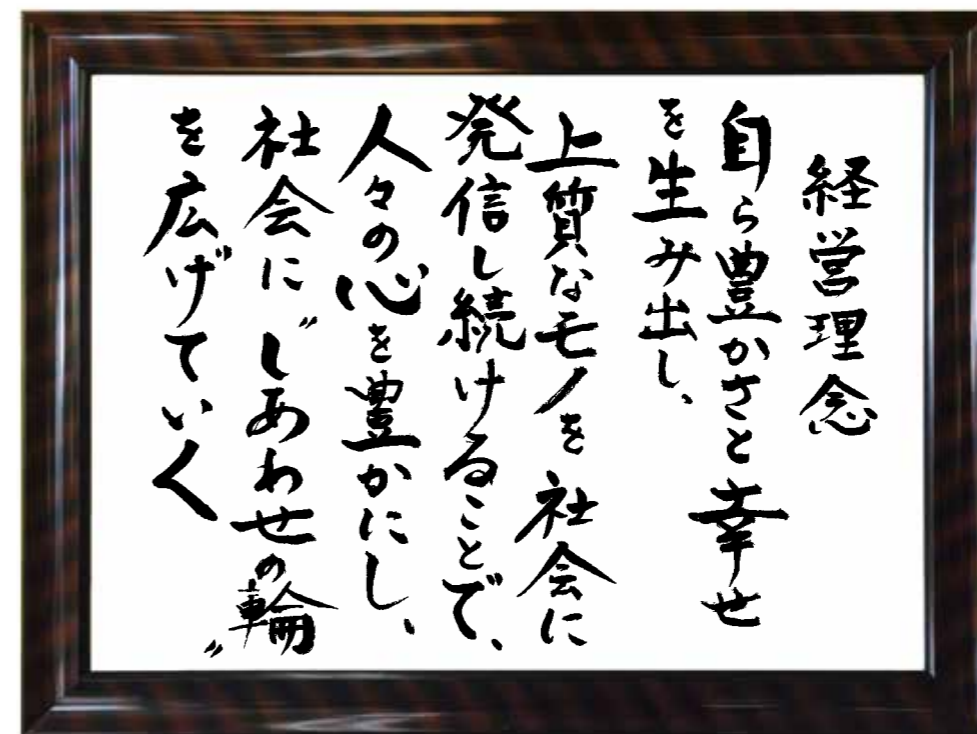 経営理念
自ら豊かさと幸せ
を生み出し、
上質なモノを社会に
発信し続けることで、
人々の心を豊かにし、
社会に〝しあわせの輪〟
を広げていく